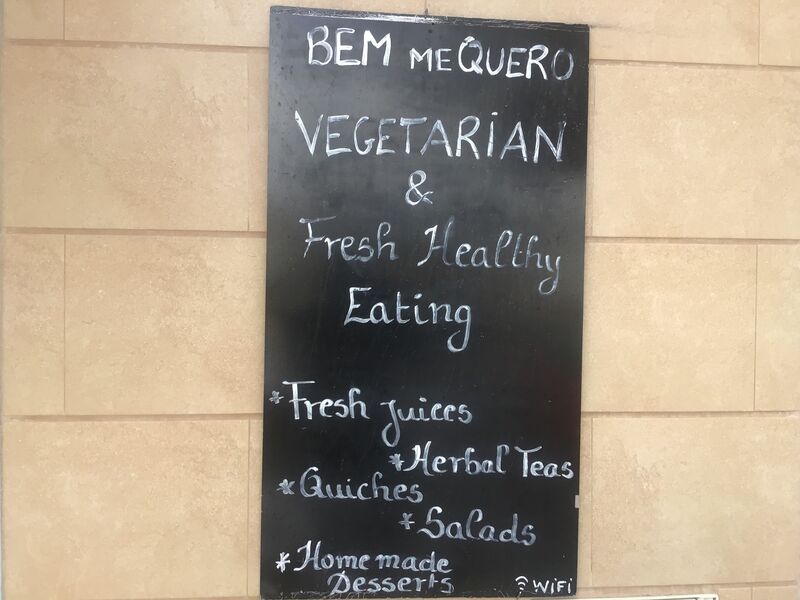 BEM ME QUERO
VEGETARIAN
&
Fresh Healthy
Eating
*Fresh juices
*Herbal Teas
*Quiches
*Salads
*Home made
Desserts
WiFi